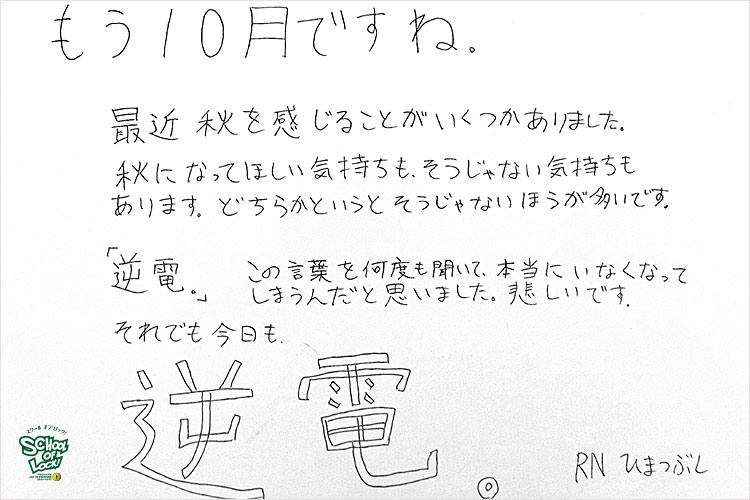 もう10月ですね。
最近 秋を感じることがいくつかありました。
秋になってほしい気持ちも、そうじゃない気持ちも
あります。どちらかというとそうじゃないほうが多いです。
「逆電。」 この言葉を何度も聞いて、本当にいなくなって
しまうんだと思いました。悲しいです。
それでも今日も、
逆電。
RN ひまつぶし
スクールオブロック!
SCHOOL OF LOCK!